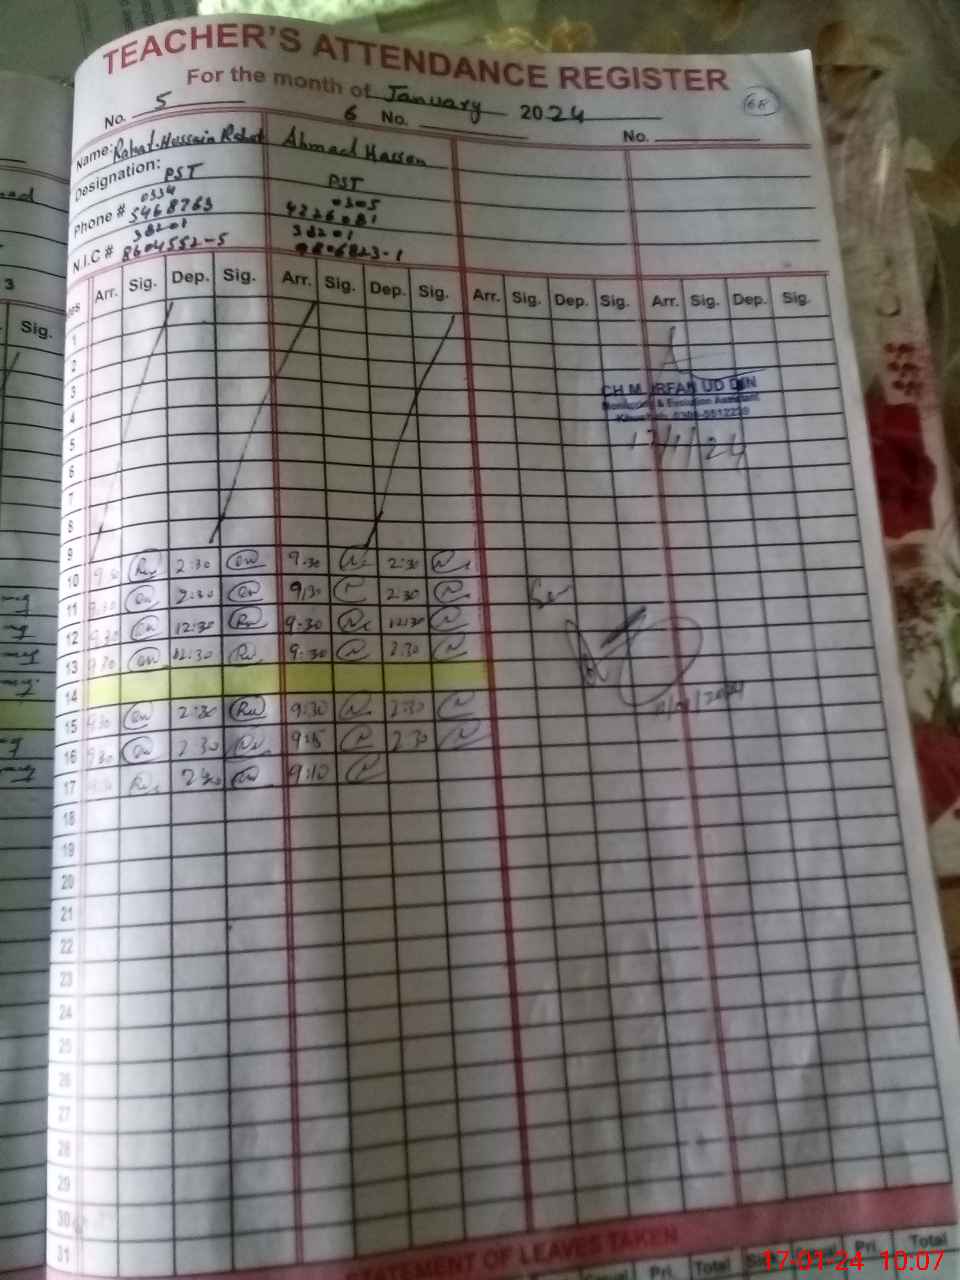 TEACHER'S ATTENDANCE REGISTER
For the month of January 2024
68
No. 5 6 No. No.
Name: Rahat Hussain Rahat Ahmad Hassan
Designation: PST PST
0334 0305
Phone # 5468763 4226081
38201 38201
N.I.C # 8604552-5 9806823-1
Arr. Sig. Dep. Sig. Arr. Sig. Dep. Sig. Arr. Sig. Dep. Sig. Arr. Sig. Dep. Sig.
3
Sig.
1
2
3
CH M. IRFAN UD DIN
4
Monitoring & Evolution Assistant
5
17/1/24
6
7
8
9
10 9:30 2:30 9:30 2:30
11 9:30 2:30 9:30 2:30
12 9:30 12:30 9:30 12:30
13 9:30 12:30 9:30 2:30
14
15 9:30 2:30 9:30 2:30
16 9:30 2:30 9:15 2:30
17 2:30 9:10
18
19
20
21
22
23
24
25
26
27
28
29
30
31
STATEMENT OF LEAVES TAKEN
Pri. Total Pri. Total
17-01-24 10:07